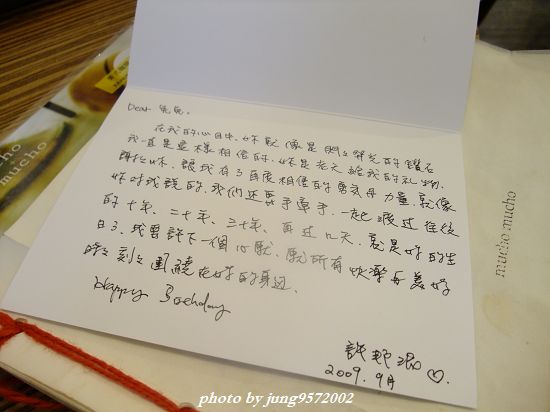 Dear
在我的心目中,妳就像是閃閃發光的鑽石
我一直是這樣相信的,妳是老天給我的禮物,
謝謝妳,讓我有了再度相信的勇氣與力量,就像
妳對我說的,我們還要手牽手,一起渡過往後
的十年、二十年、三十年,再過幾天,就是妳的生
日了,我要許下一個心願,願所有快樂與美好
時時刻刻圍繞在妳的身邊.
Happy Birthday
2009. 9月 ♡.
mucho
mucho
mucho mucho
photo by jung9572002